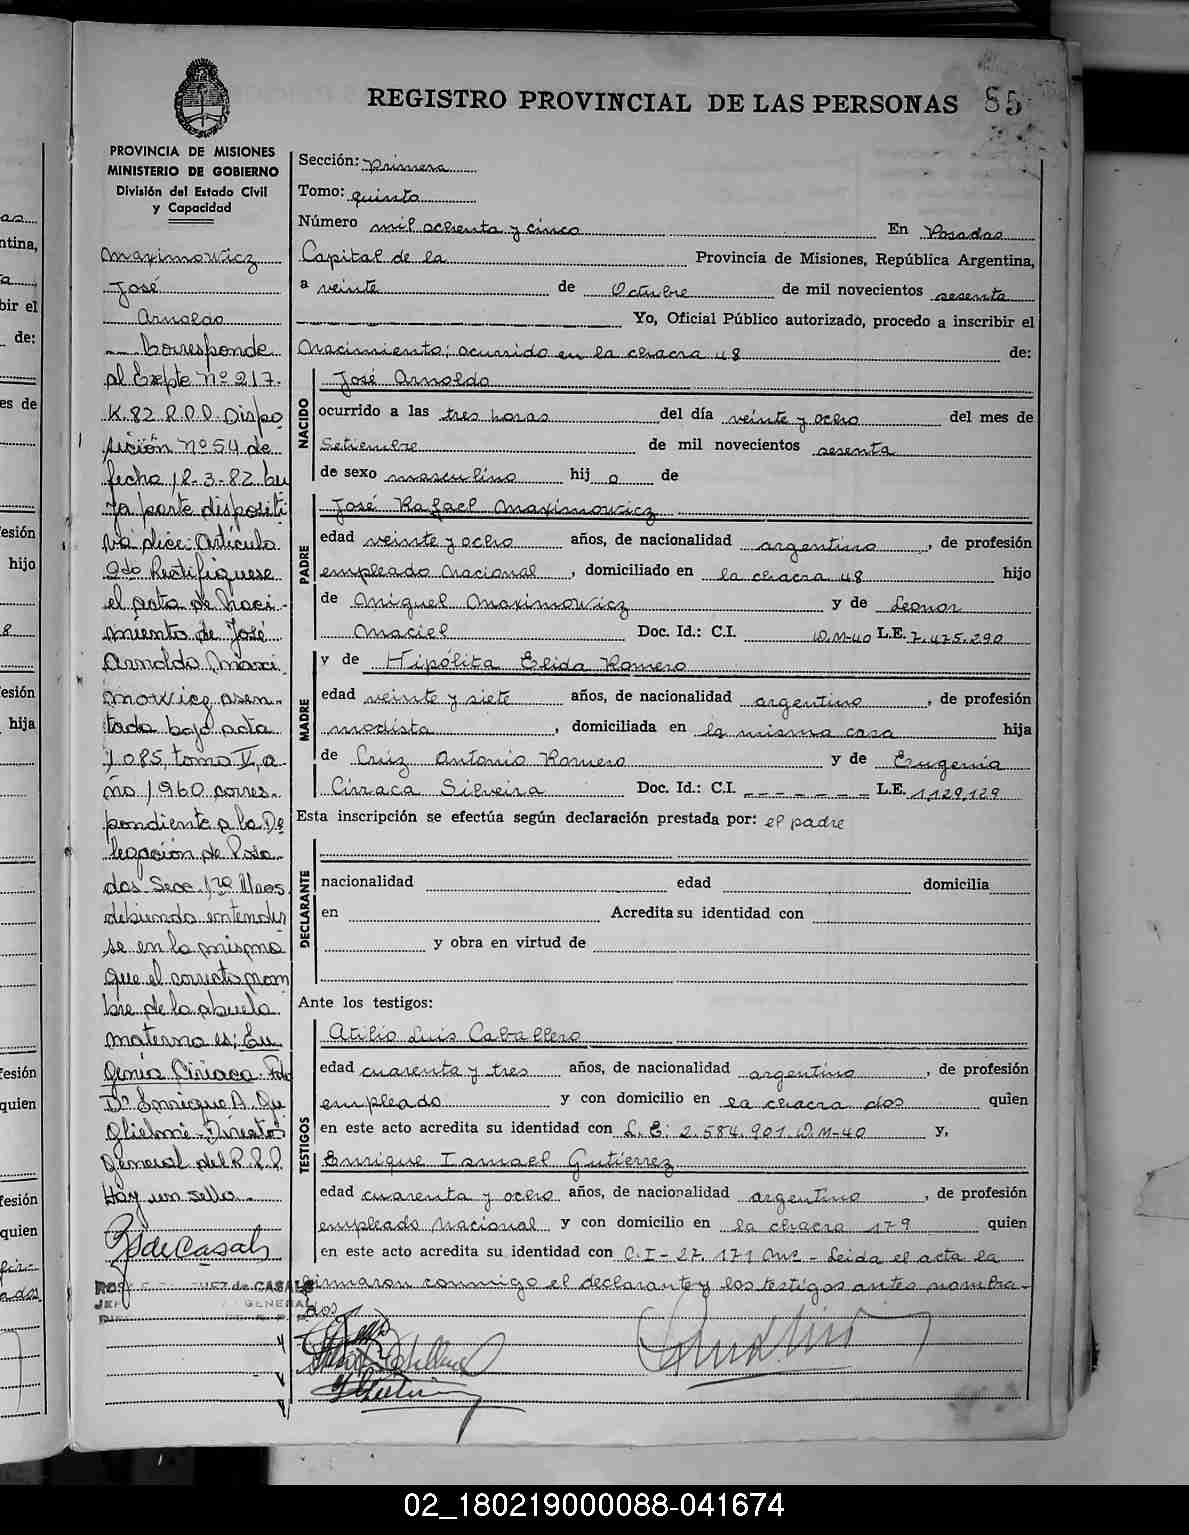 REGISTRO PROVINCIAL DE LAS PERSONAS 85
PROVINCIA DE MISIONES
MINISTERIO DE GOBIERNO
División del Estado Civil
y Capacidad
Maximowicz
José
Arnoldo
Corresponde
al Expte Nº 217.
K.82 R.P.P. Dispo
sición Nº 54 de
fecha 12-3-82 cu
ya parte dispositi
va dice: Artículo
2do Rectifíquese
el acta de Naci-
miento de José
Arnoldo Maxi
mowicz asen-
tada bajo acta
1085, tomo V, a
ño 1960 corres-
pondiente a la De
legación de Posa
das Secc. 1ra Mnes.
debiendo entender
se en la misma
que el correcto nom
bre de la abuela
materna es: Eu
genia Ciriaca. Fdo
Dr Enrique A. Gu
glielmi-Director
General del R.P.P.
Hay un sello.
Sección: Primera
Tomo: quinto
Número mil ochenta y cinco En Posadas
Capital de la Provincia de Misiones, República Argentina,
a veinte de Octubre de mil novecientos sesenta
Yo, Oficial Público autorizado, procedo a inscribir el
Nacimiento; ocurrido en la chacra 48 de:
NACIDO
José Arnoldo
ocurrido a las tres horas del día veinte y ocho del mes de
Setiembre de mil novecientos sesenta
de sexo masculino hij o de
PADRE
José Rafael Maximowicz
edad veinte y ocho años, de nacionalidad argentino, de profesión
empleado Nacional, domiciliado en la chacra 48 hijo
de Miguel Maximowicz y de Leonor
Maciel Doc. Id.: C.I. D.M-40 L.E. 7.475.290
MADRE
y de Hipólita Elida Romero
edad veinte y siete años, de nacionalidad argentino, de profesión
modista, domiciliada en la misma casa hija
de Cruz Antonio Romero y de Eugenia
Ciriaca Silveira Doc. Id.: C.I. - - - - - - - L.E. 1,129,129
Esta inscripción se efectúa según declaración prestada por: el padre
DECLARANTE
nacionalidad edad domicilia
en Acredita su identidad con
y obra en virtud de
Ante los testigos:
TESTIGOS
Atilio Luis Caballero
edad cuarenta y tres años, de nacionalidad argentino, de profesión
empleado y con domicilio en la chacra dos quien
en este acto acredita su identidad con L.E: 2.584.901 D.M-40 y,
Enrique Ismael Gutiérrez
edad cuarenta y ocho años, de nacionalidad argentino, de profesión
empleado Nacional y con domicilio en la chacra 179 quien
en este acto acredita su identidad con C.I-27.171 Mns - Leida el acta la
firmaron conmigo el declarante y los testigos antes nombra-
dos
02_180219000088-041674